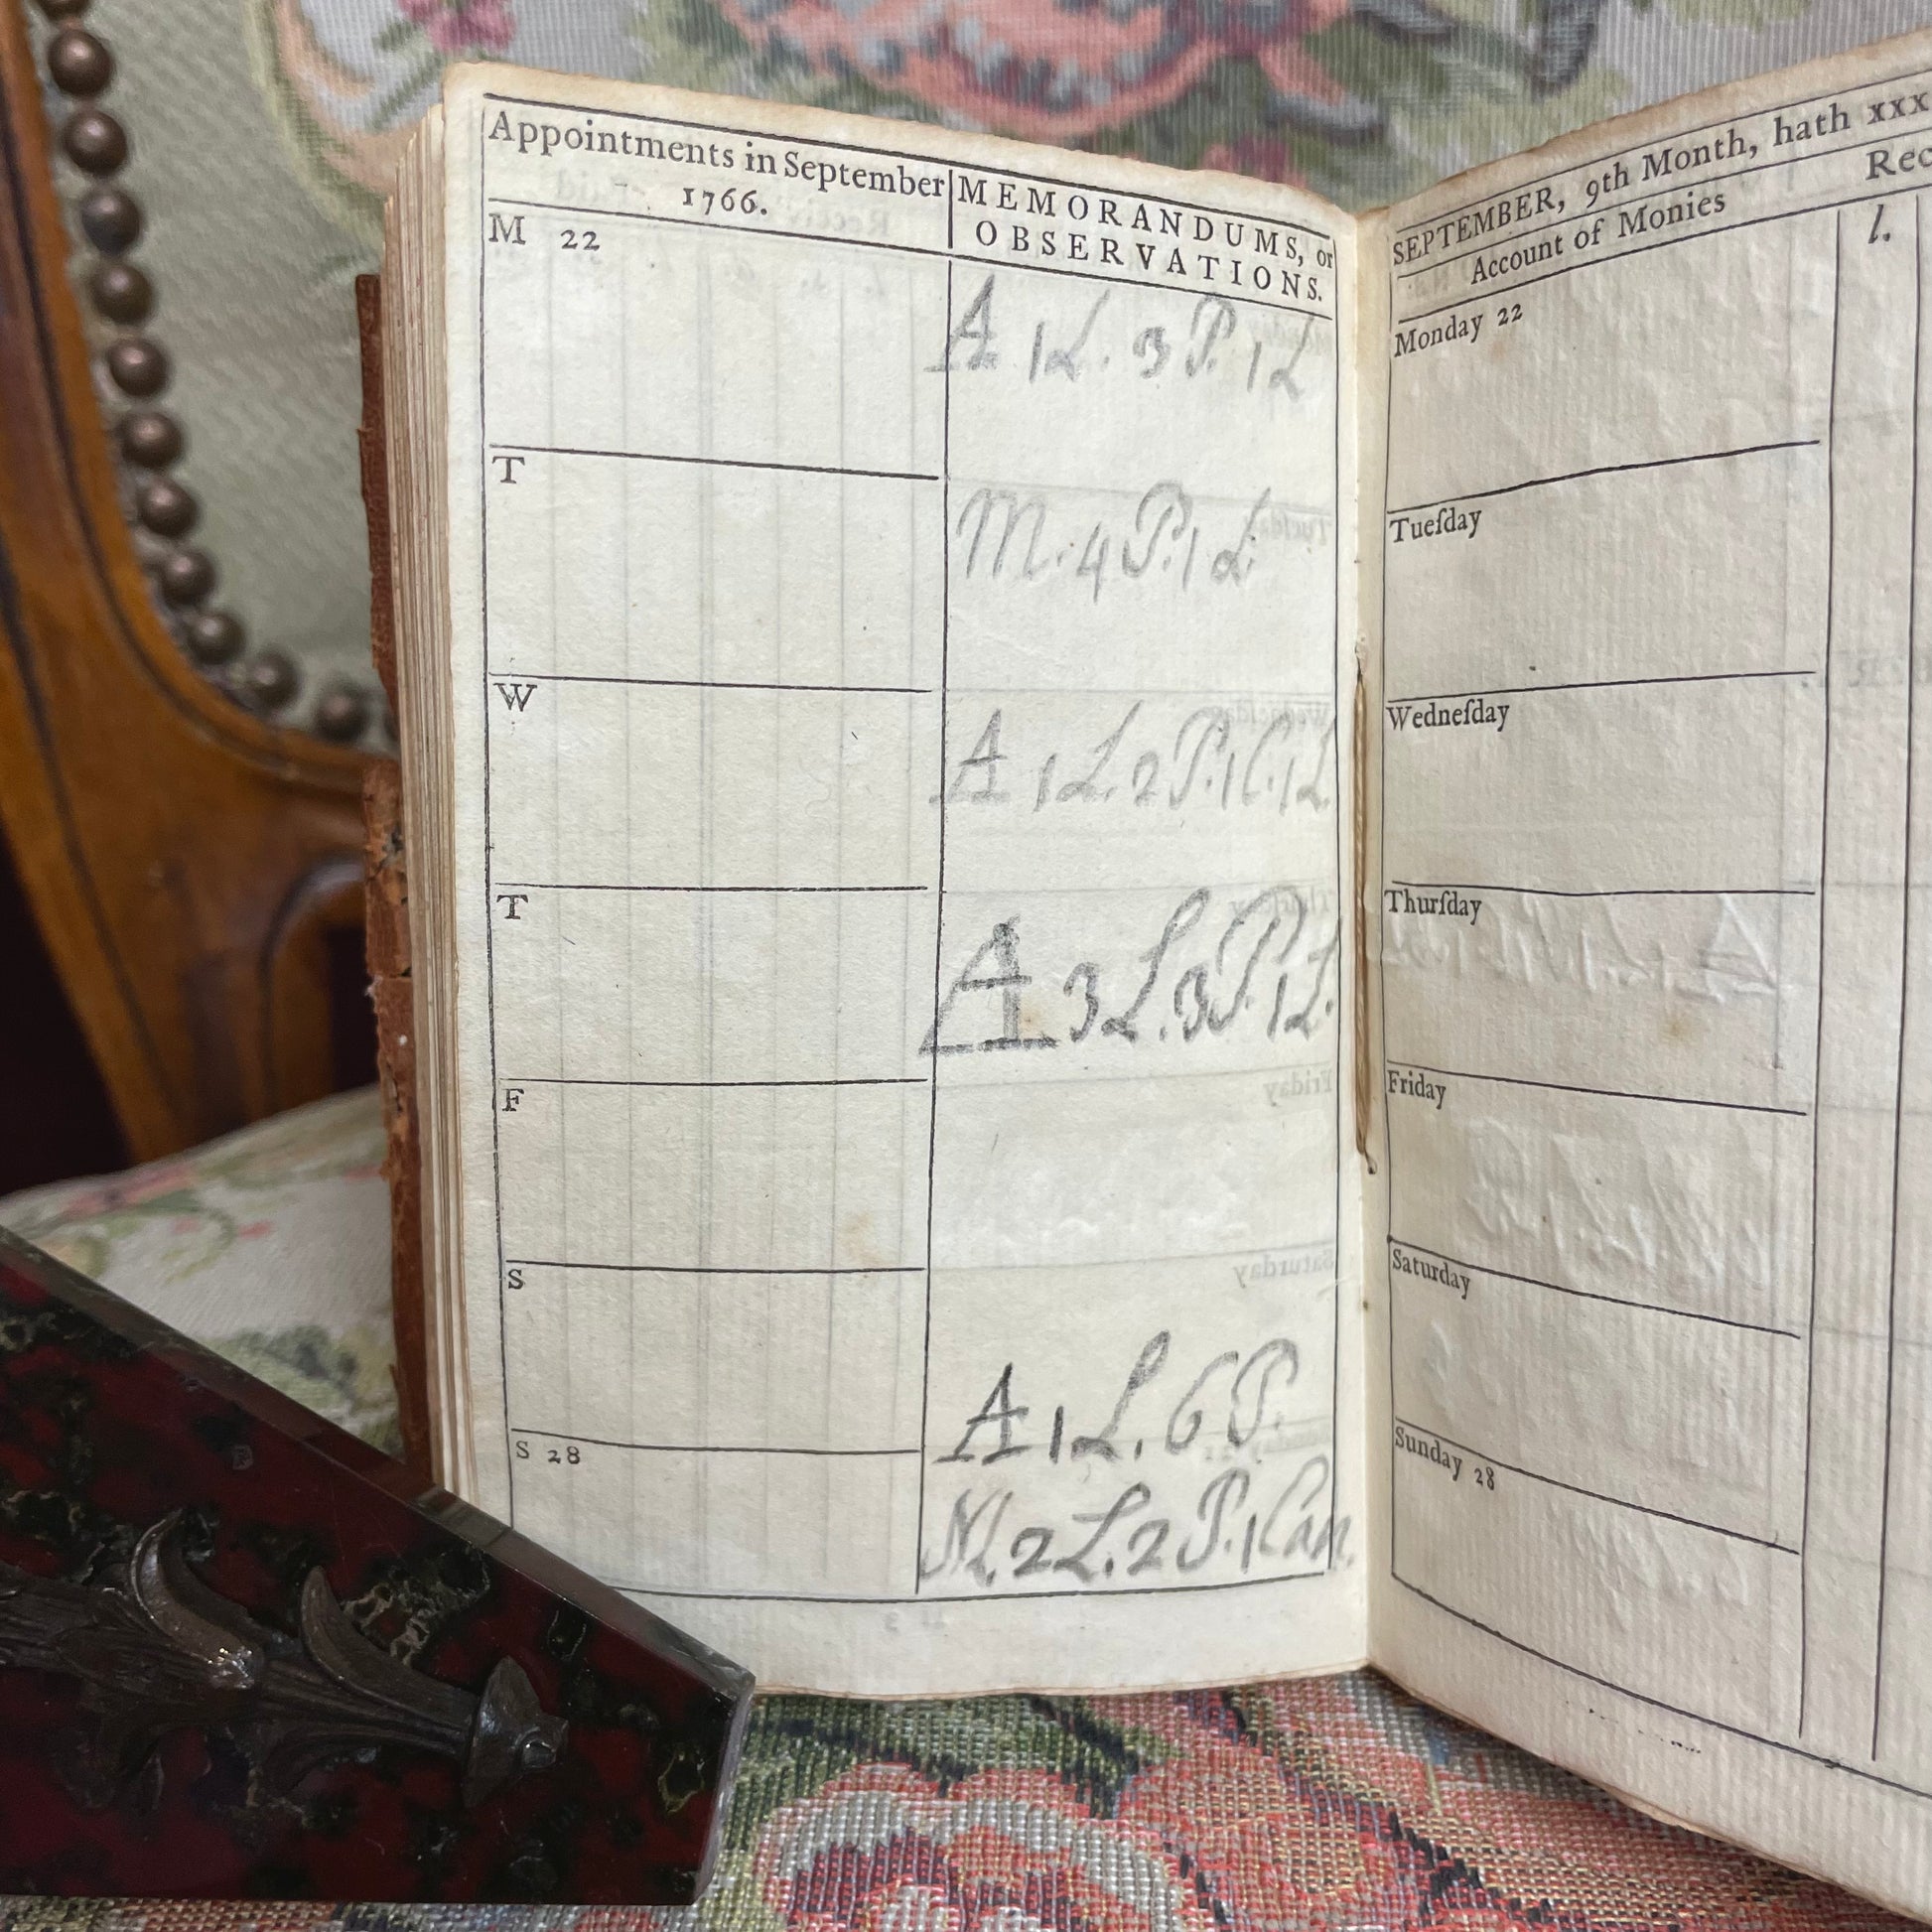 Appointments in September
1766.
MEMORANDUMS, or
OBSERVATIONS.
M 22
A 1L. 3P. 1L
T
M. 4P. 1L.
W
A 1L. 2P. 1C. 1L.
T
A 3L. 3P. 1L.
F
S
A 1L. 6P.
S 28
M. 2L. 2P. 1Can.
SEPTEMBER, 9th Month, hath xxx
Account of Monies
Rec
l.
Monday 22
Tueſday
Wedneſday
Thurſday
Friday
Saturday
Sunday 28